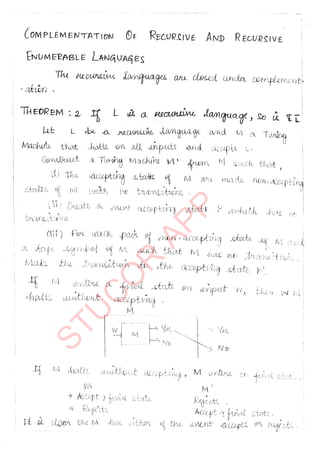 COMPLEMENTATION OF RECURSIVE AND RECURSIVE
ENUMERABLE LANGUAGES
The recursive languages are closed under complement-
-ation.
THEOREM : 2 If L is a recursive language, so is L
Let L be a recursive language and M a Turing
Machine that halts on all inputs and accepts L.
Construct a Turing Machine M' from M such that,
i) The accepting states of M are made non-accepting
states of M with no transitions.
ii) Create a new accepting state P which has no
transitions.
iii) For each pair of non-accepting state of M and
a tape symbol of M such that M has no transition.
Make the transition to the accepting state P.
If M enters a final state on input w, then
halts without accepting.
M
W M Yes Yes
No No
If M halts without accepting, M enters final state.
M M'
Accept final state Rejects.
Rejects Accept final state.
It is clear the M has either of the event accepts or rejects.
STUCOR APP